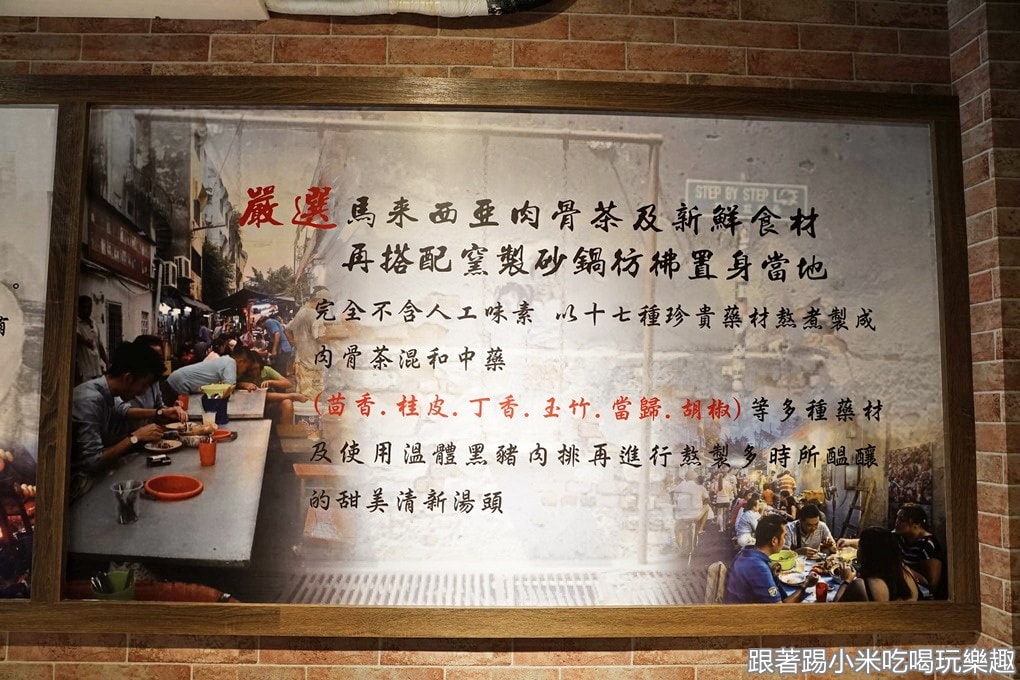 嚴選 馬来西亞肉骨茶及新鮮食材
再搭配窯製砂鍋彷彿置身當地
完全不含人工味素 以十七種珍貴藥材熬煮製成
肉骨茶混和中藥
(茴香.桂皮.丁香.玉竹.當歸.胡椒)等多種藥材
及使用溫體黑豬肉排再進行熬製多時所醞釀
的甜美清新湯頭
STEP BY STEP
。
跟著踢小米吃喝玩樂趣